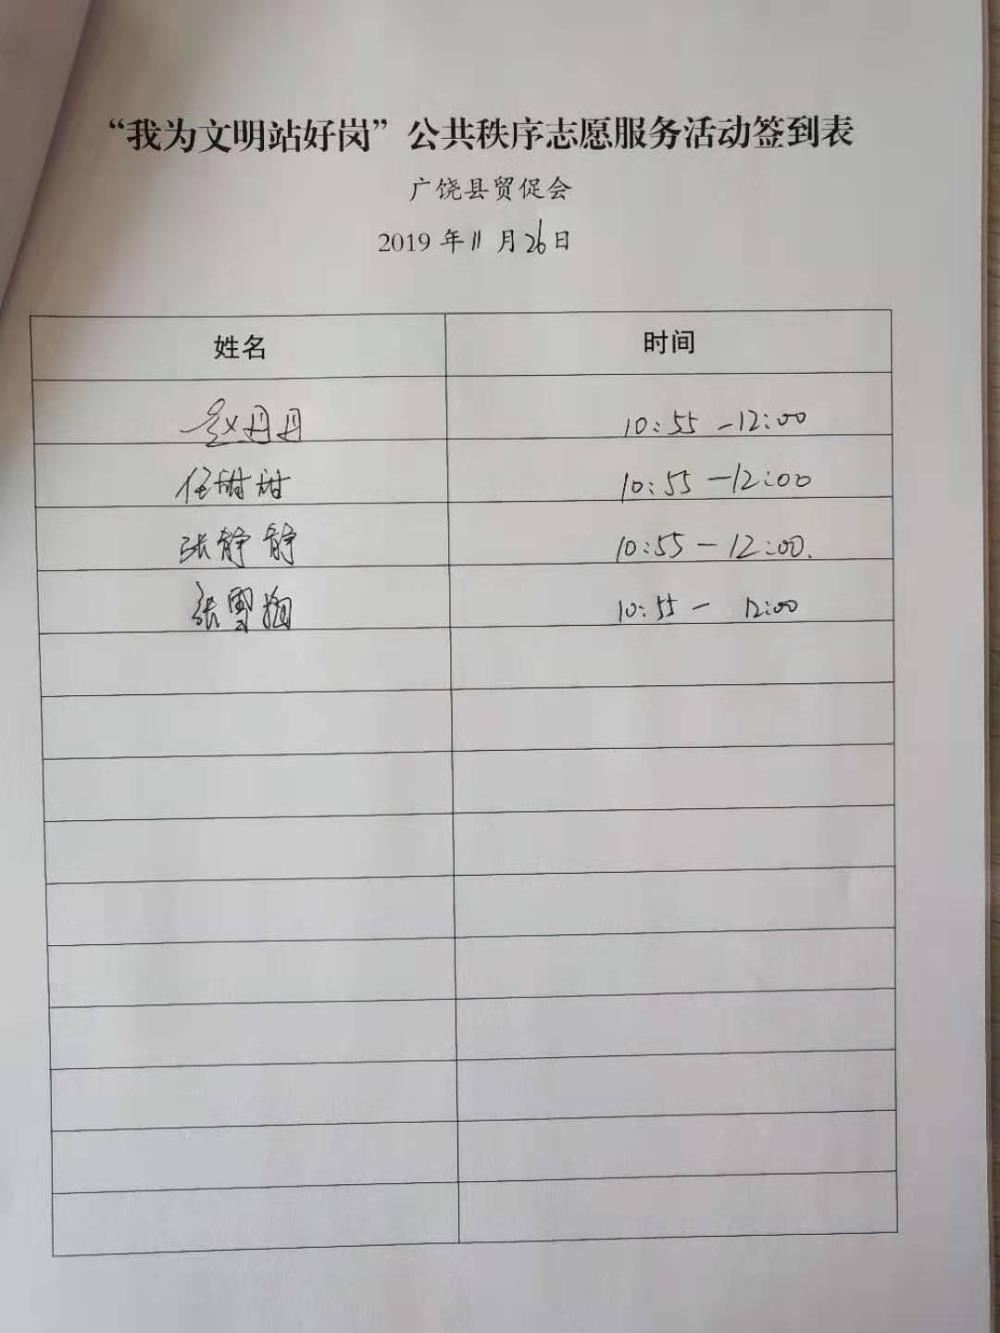 “我为文明站好岗”公共秩序志愿服务活动签到表
广饶县贸促会
2019年11月26日
姓名 时间
赵丹丹 10:55-12:00
任甜甜 10:55-12:00
张静静 10:55-12:00.
张雪 10:55-12:00